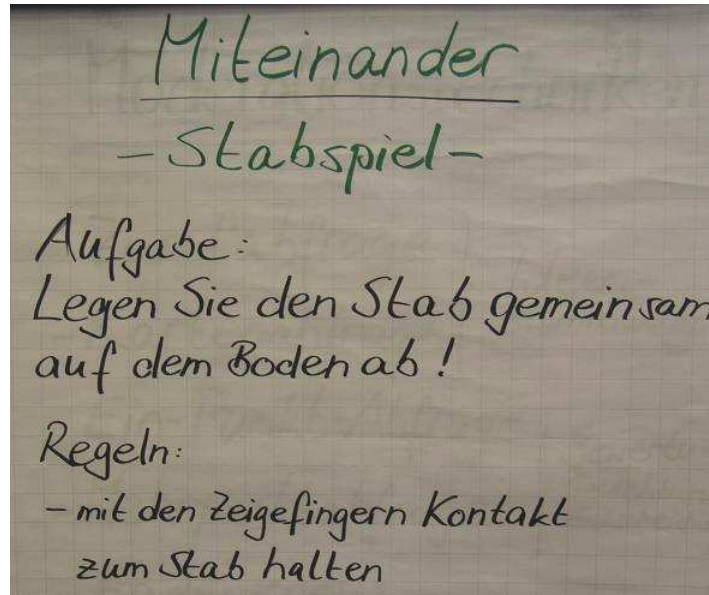 Miteinander
- Stabspiel -
Aufgabe:
Legen Sie den Stab gemeinsam
auf dem Boden ab!
Regeln:
- mit den Zeigefingern Kontakt
zum Stab halten